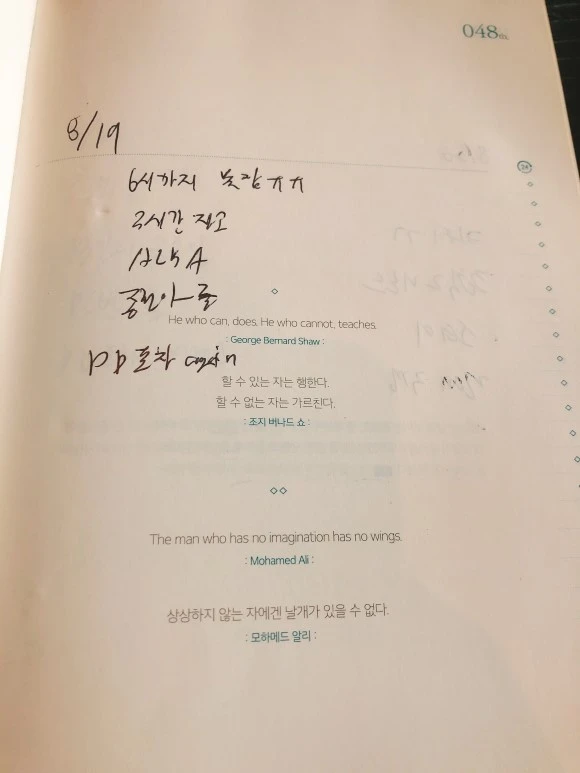 048th
8/19
6시까지 못잠ㅠㅠ
3시간 자고
He who can, does. He who cannot, teaches.
: George Bernard Shaw :
PP 혼차 again
할 수 있는 자는 행한다.
할 수 없는 자는 가르친다.
: 조지 버나드 쇼 :
The man who has no imagination has no wings.
: Mohamed Ali :
상상하지 않는 자에겐 날개가 있을 수 없다.
: 모하메드 알리 :